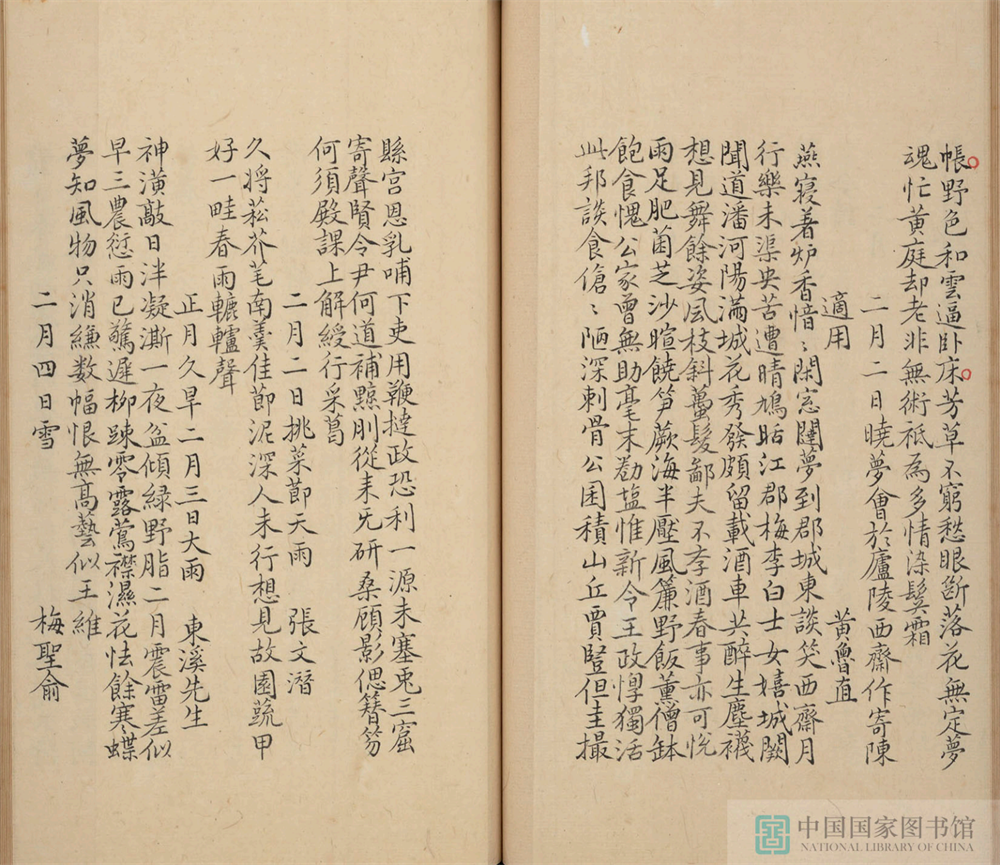 帳野色和雲逼卧床芳草不窮愁眼斷落花無定夢
魂忙黄庭却老非無術祗為多情染鬓霜
二月二日曉夢會於廬陵西齋作寄陳
適用　黄魯直
燕寢着炉香愔〻閑窓闥夢到郡城東談笑西齋月
行樂未渠央苦遭晴鳩聒江郡梅李白士女嬉城闕
聞道潘河陽滿城花秀發頗留載酒車共醉生塵襪
想見舞餘姿風枝斜蠆髮鄙夫不李酒春事亦可悦
雨足肥菌芝沙暄饒笋蕨海半壓風簾野飯薰僧缽
飽食愧公家曾無助毫末勸塩惟新令王政悙獨活
此邦談食傖〻陋深刺骨公困積山丘賈豎但圭撮
縣宫恩乳哺下吏用鞭撻政恐利一源未塞兎三窟
寄聲賢令尹何道補黥刖從耒旡研桑顧影偲簪笏
何須殿課上解綬行采葛
二月二日挑菜節天雨　張文潛
久将菘芥芼南羹佳節泥深人未行想見故園蔬甲
好一畦春雨轆轤聲
正月久旱二月三日大雨　東溪先生
神潢敲日泮凝澌一夜盆傾緑野脂二月震雷差似
早三農愆雨已驚遲柳踈零露鶯襟濕花怯餘寒蝶
夢知風物只消縑数幅恨無髙藝似王維
二月四日雪　梅聖俞
中国国家图书馆
NATIONAL LIBRARY OF CHINA